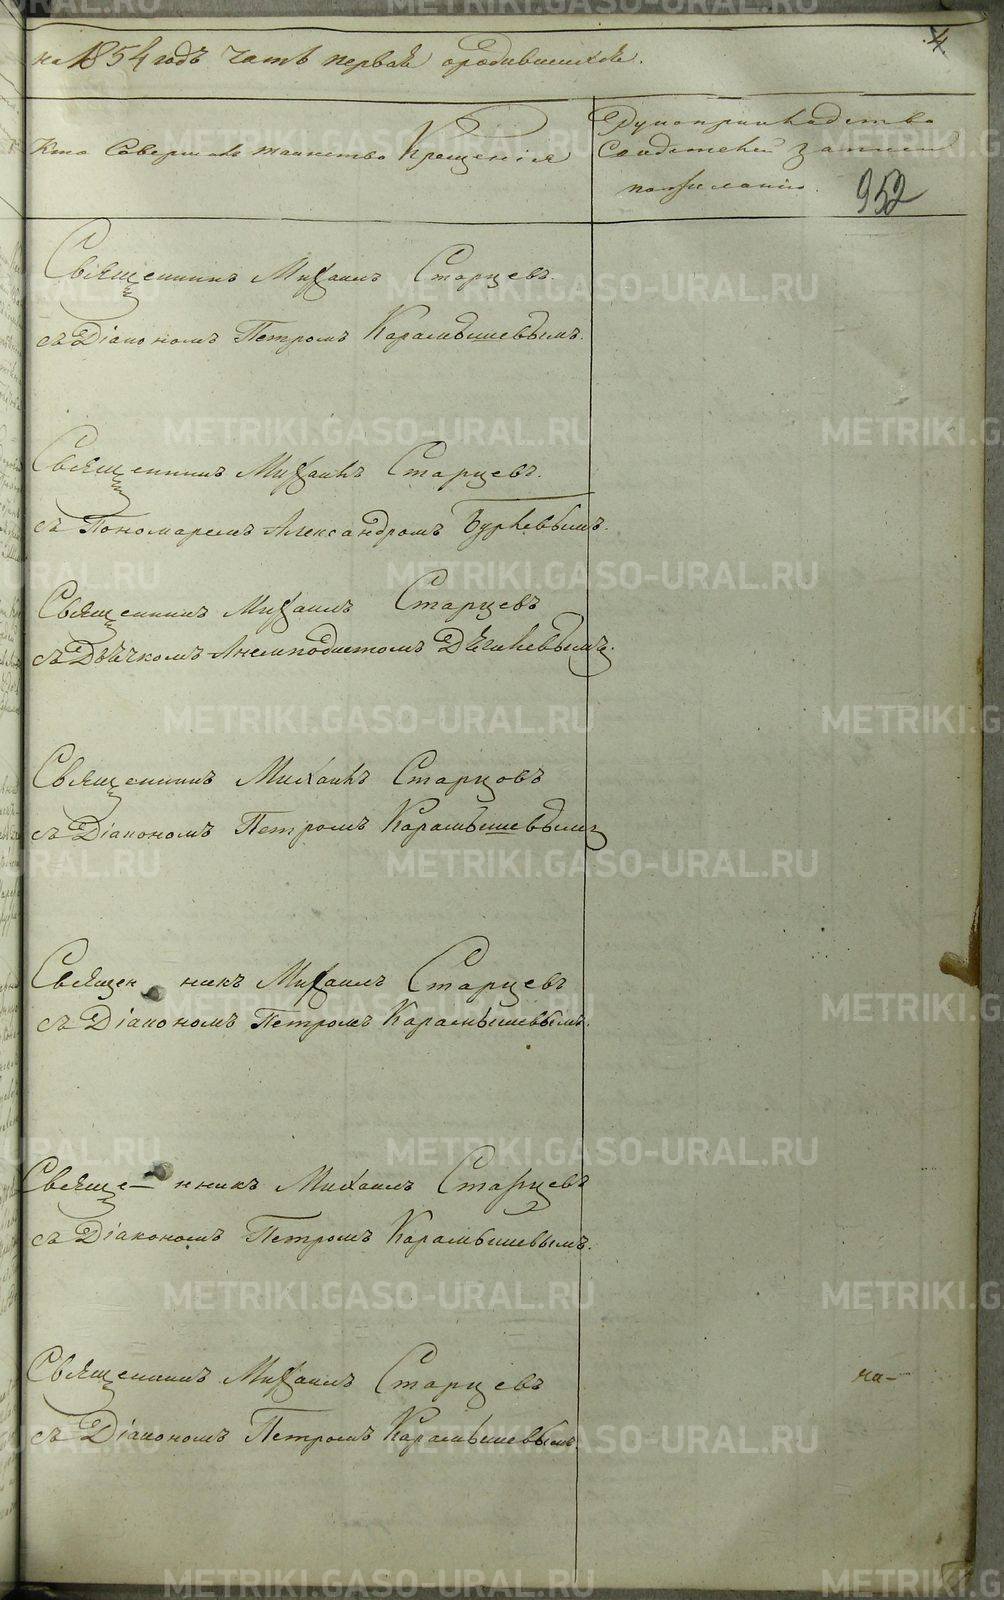 4.
на 1854 годъ часть первая о родившихся.
Кто совершалъ таинство Крещенія
Рукоприкладство
свидетелей записи
по желанію.
952
Священникъ Михаилъ Старцевъ.
съ Діакономъ Петромъ Карамышевымъ.
Священникъ Михаилъ Старцевъ.
съ Пономаремъ Александромъ
Священникъ Михаилъ Старцевъ
съ Дьячкомъ Анемподистомъ Дягилевымъ.
Священникъ Михаилъ Старцовъ
съ Діакономъ Петромъ Карамышевымъ
Священникъ Михаилъ Старцевъ
съ Діакономъ Петромъ Карамышевымъ.
Священникъ Михаилъ Старцевъ
съ Діакономъ Петромъ Карамышевымъ.
Священникъ Михаилъ Старцевъ
съ Діакономъ Петромъ Карамышевымъ.
METRIKI.GASO-URAL.RU